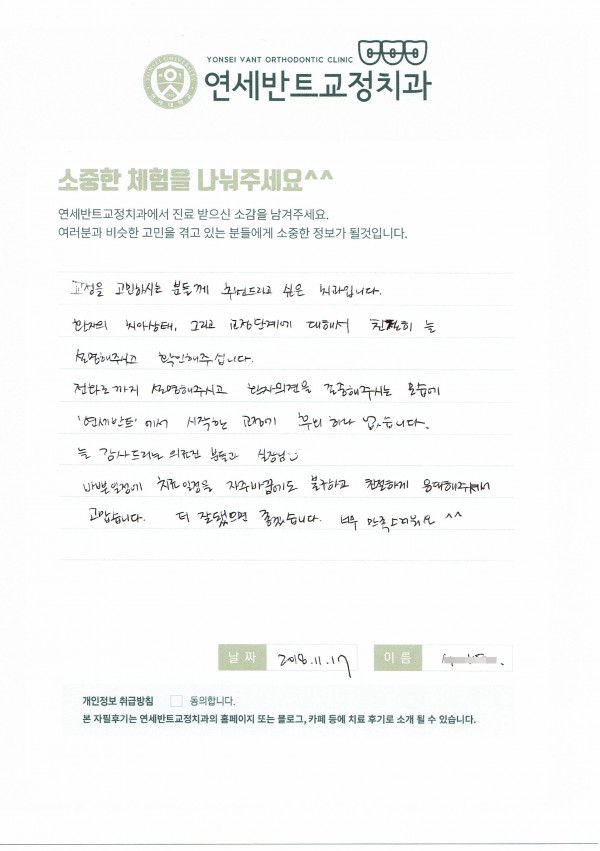 YONSEI VANT ORTHODONTIC CLINIC
연세반트교정치과
소중한 체험을 나눠주세요^^
연세반트교정치과에서 진료 받으신 소감을 남겨주세요.
여러분과 비슷한 고민을 겪고 있는 분들에게 소중한 정보가 될것입니다.
교정을 고민하시는 분들께 추천드리고 싶은 치과입니다.
환자의 치아상태, 그리고 교정단계에 대해서 친절히 늘
설명해주시고 확인해주십니다.
전화로까지 설명해주시고 환자의견을 존중해주시는 모습에
'연세반트'에서 시작하는 교정이 후회 하나 없습니다.
늘 감사드리는 의료진 분들과 실장님
바쁜일정에 치료일정을 자주바꿈에도 불구하고 친절하게 응대해주셔서
고맙습니다. 더 잘됐으면 좋겠습니다. 너무 만족스러워요 ^^
날 짜 2018.11.17 이 름
개인정보 취급방침 동의합니다.
본 자필후기는 연세반트교정치과의 홈페이지 또는 블로그, 카페 등에 치료 후기로 소개 될 수 있습니다.